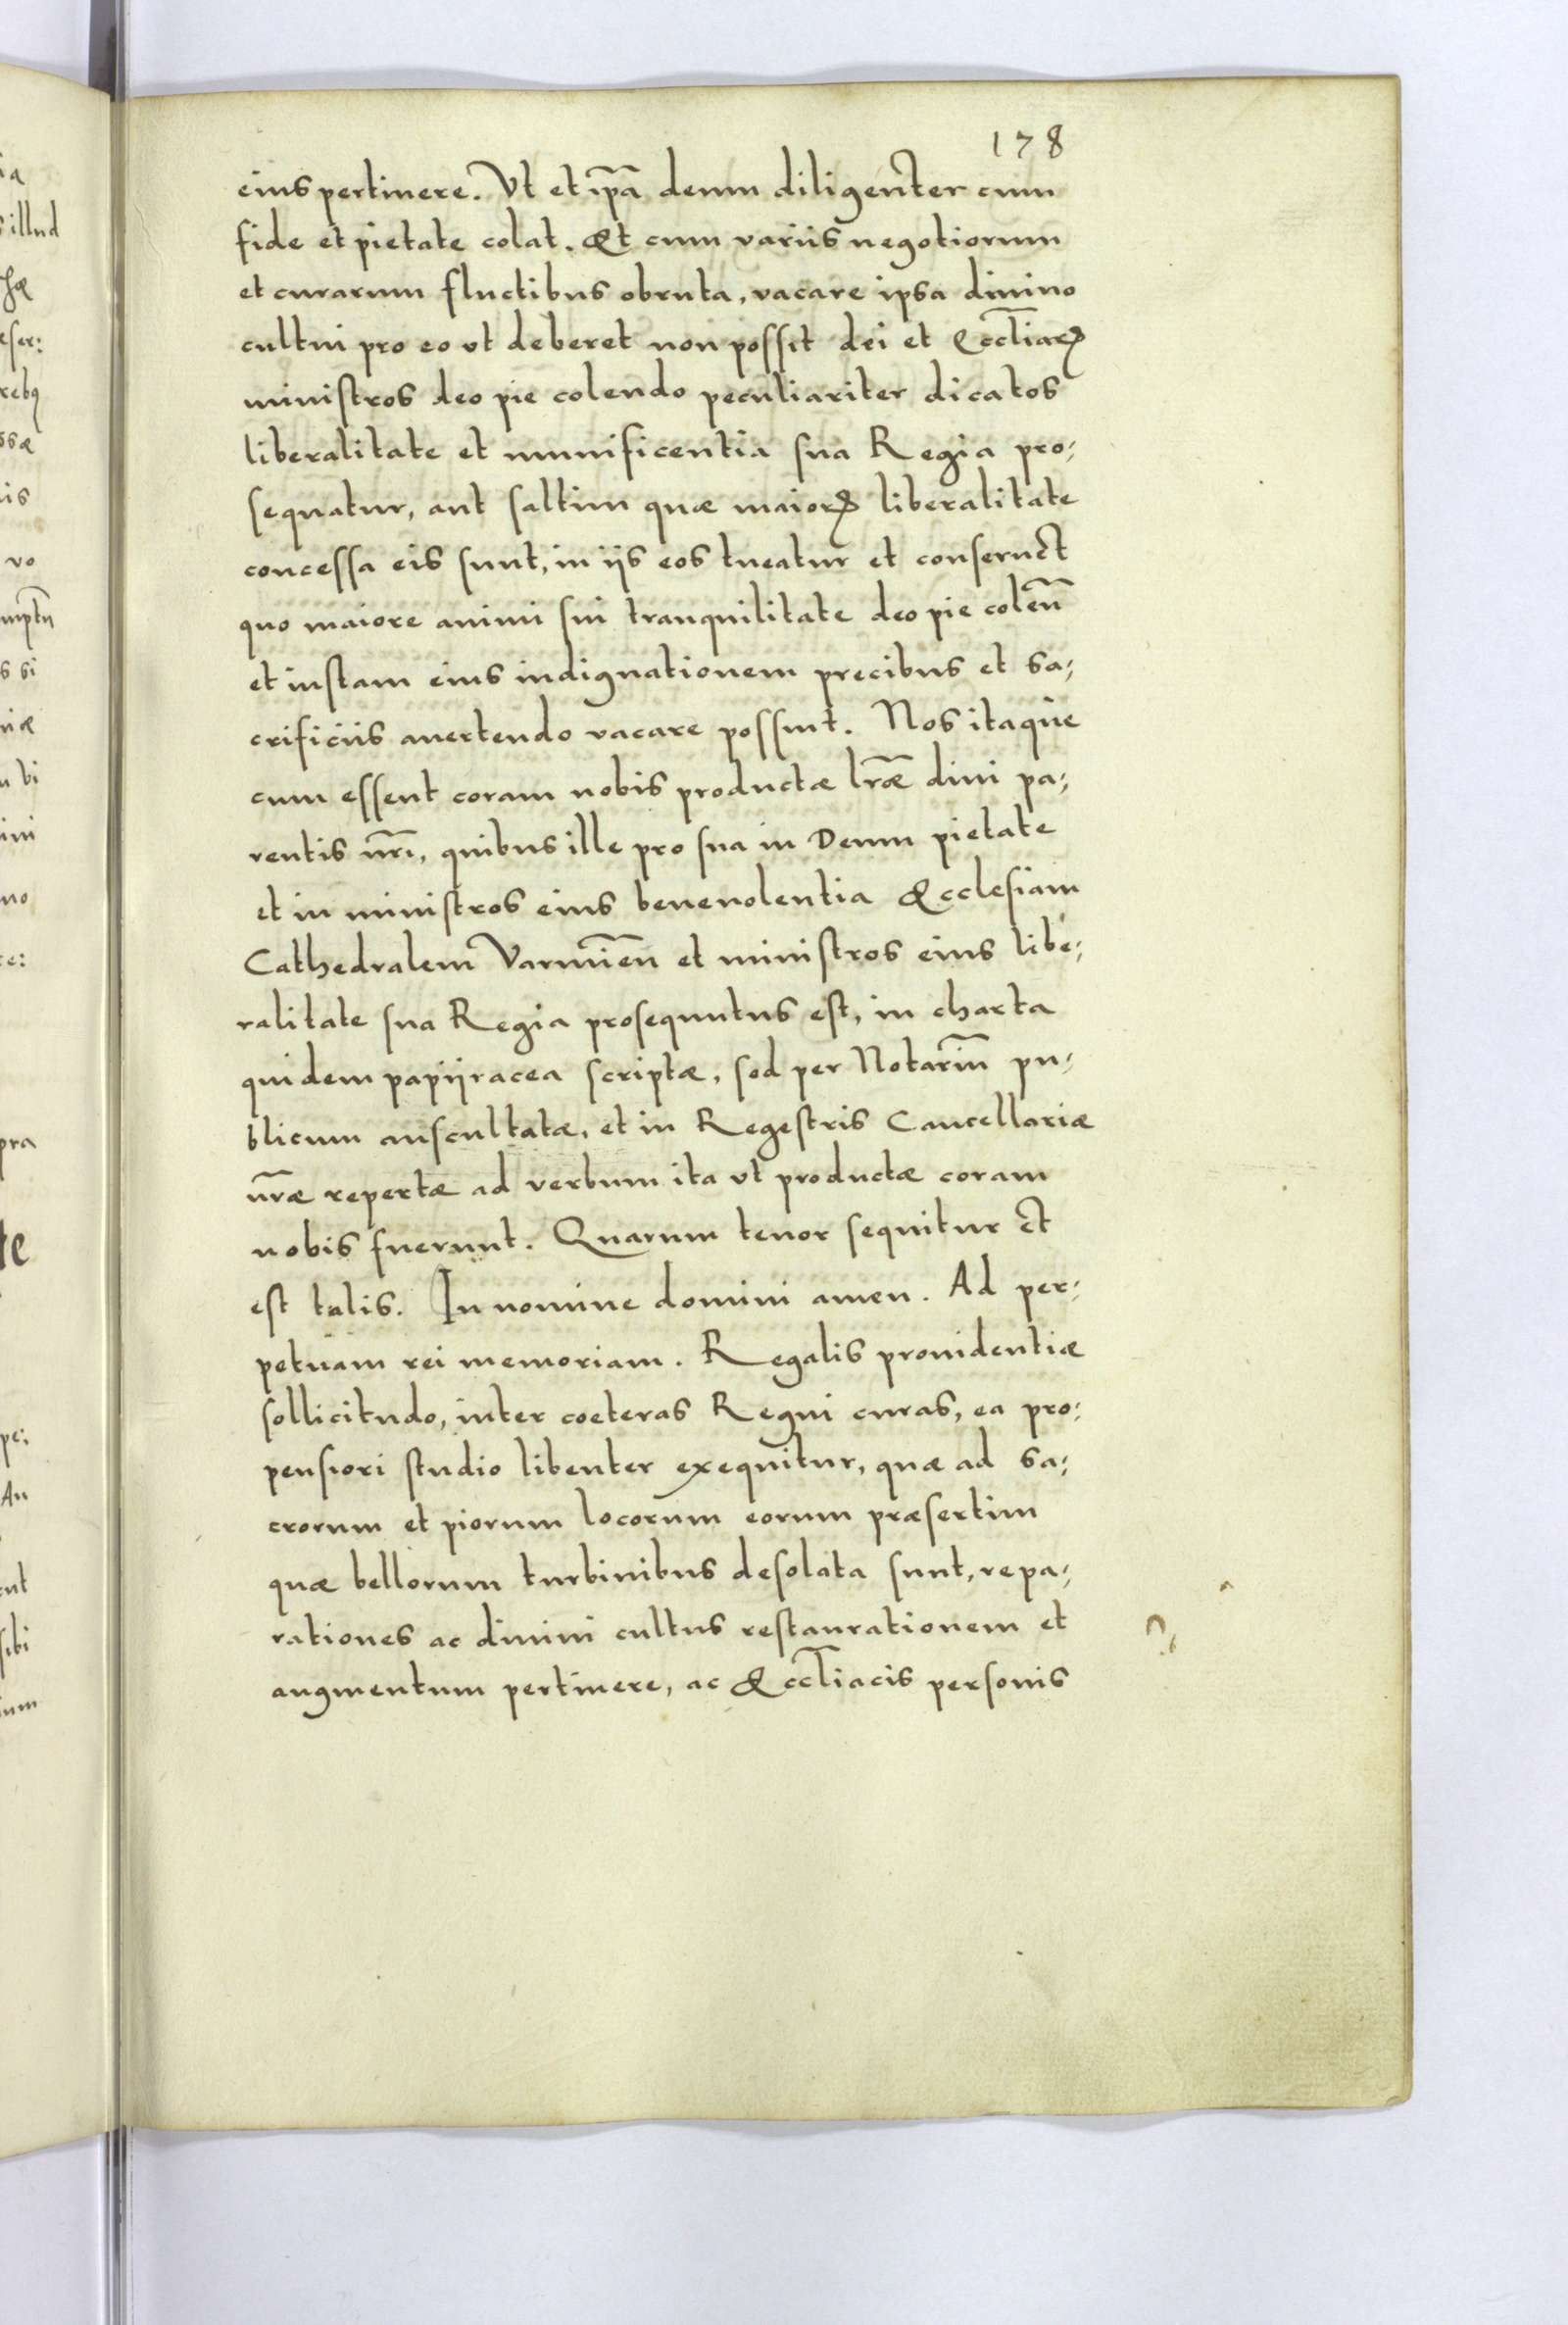 178
eius pertinere. Vt et ip̃a deum diligenter cum
fide et pietate colat. Et cum variis negotiorum
et curarum fluctibus obruta, vacare ipsa diuino
cultui pro eo vt deberet non possit dei et Eccl̃iarꝝ
ministros deo pie colendo peculiariter dicatos
liberalitate et munificentia sua Regia pro;
sequatur, aut saltim quæ maiorꝝ liberalitate
concessa eis sunt, in iis eos tueatur et conseruet
quo maiore animi sui tranquilitate deo pie coleñ
et iustam eius indignationem precibus et sa;
crificiis auertendo vacare possint. Nos itaque
cum essent coram nobis productæ lr̃æ diui pa;
rentis nr̃i, quibus ille pro sua in Deum pietate
et in ministros eius beneuolentia Ecclesiam
Cathedralem Varmieñ et ministros eius libe;
ralitate sua Regia prosequutus est, in charta
quidem papijracea scriptæ, sed per Notariũ pu;
blicum auscultatæ, et in Regestris Cancellariæ
nr̃æ repertæ ad verbum ita vt productæ coram
nobis fuerunt. Quarum tenor sequitur et
est talis. In nomine domini amen. Ad per;
petuam rei memoriam. Regalis prouidentiæ
sollicitudo, inter coeteras Regni curas, ea pro;
pensiori studio libenter exequitur, quæ ad sa;
crorum et piorum locorum eorum præsertim
quæ bellorum turbinibus desolata sunt, repa;
rationes ac diuini cultus restaurationem et
augmentum pertinere, ac Eccl̃iacis personis